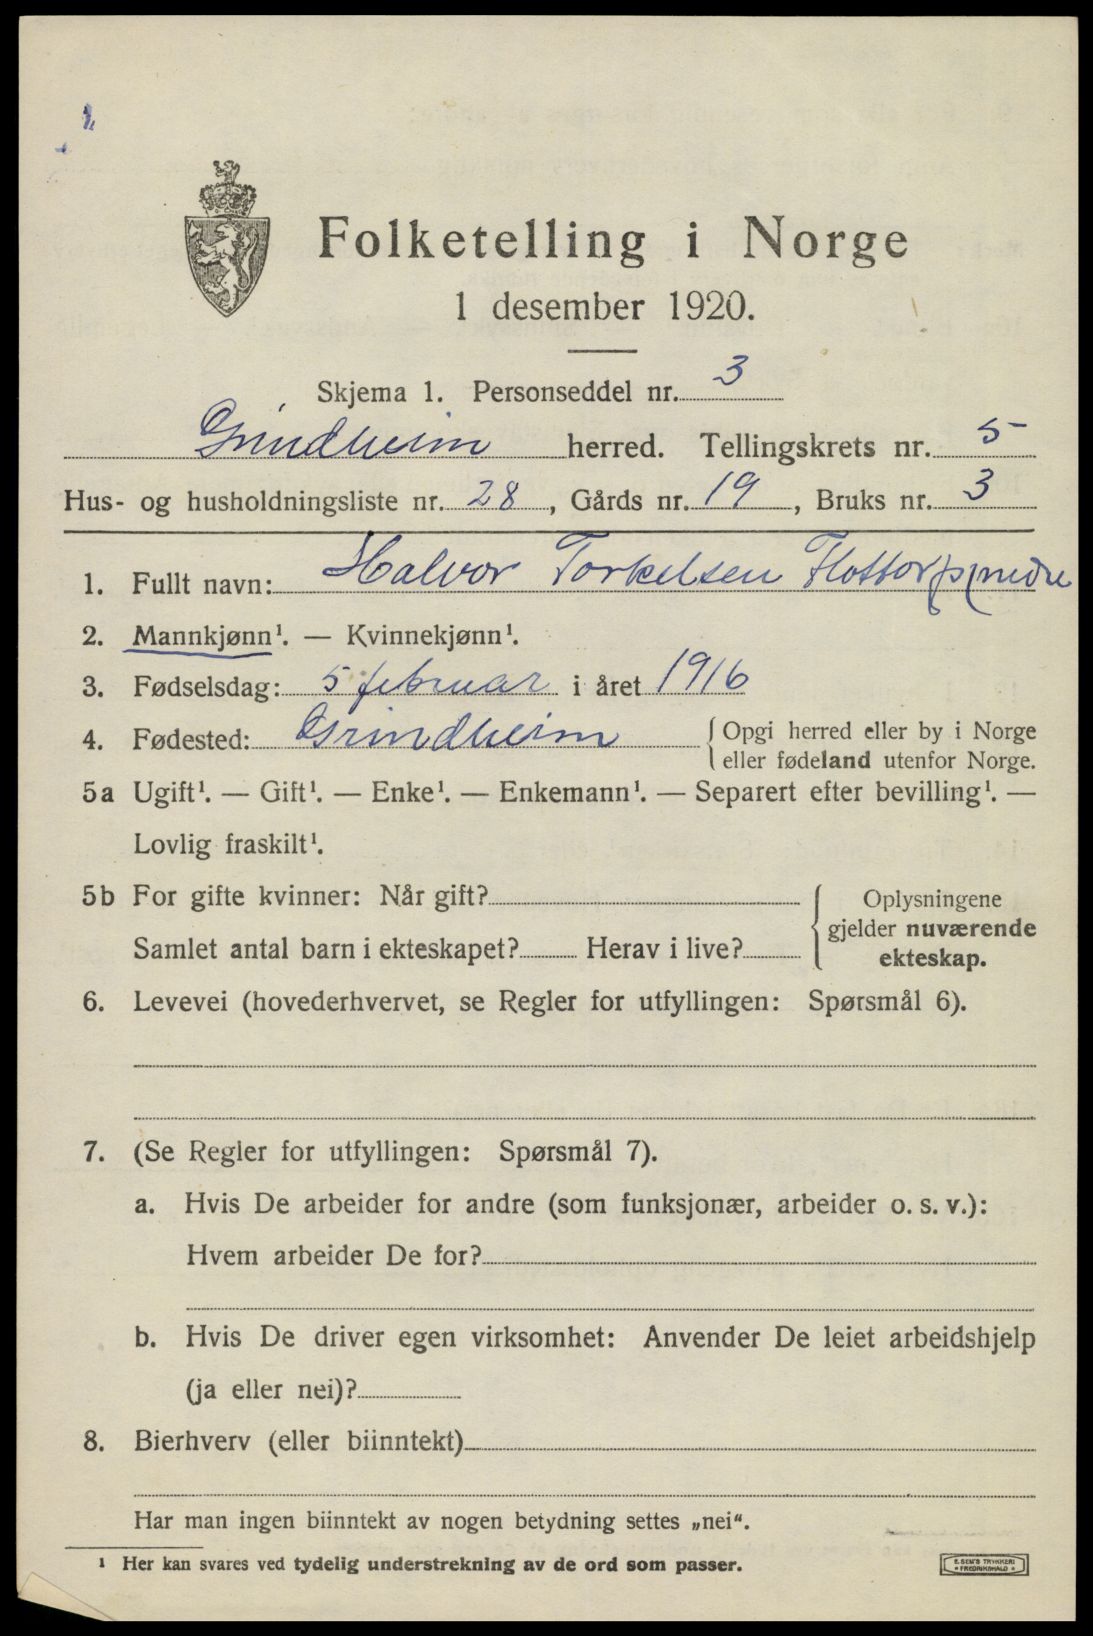 Folketelling i Norge
1 desember 1920.
Skjema 1. Personseddel nr. 3
Grindheim herred. Tellingskrets nr. 5
Hus- og husholdningsliste nr. 28, Gårds nr. 19, Bruks nr. 3
1. Fullt navn: Halvor Torkelsen Flottorp (nedre
2. Mannkjønn¹. — Kvinnekjønn¹.
3. Fødselsdag: 5 februar i året 1916
4. Fødested: Grindheim { Opgi herred eller by i Norge
eller fødeland utenfor Norge.
5a Ugift¹. — Gift¹. — Enke¹. — Enkemann¹. — Separert efter bevilling¹. —
Lovlig fraskilt¹.
5b For gifte kvinner: Når gift?
Samlet antal barn i ekteskapet? Herav i live?
{ Oplysningene
gjelder nuværende
ekteskap.
6. Levevei (hovederhvervet, se Regler for utfyllingen: Spørsmål 6).
7. (Se Regler for utfyllingen: Spørsmål 7).
a. Hvis De arbeider for andre (som funksjonær, arbeider o. s. v.):
Hvem arbeider De for?
b. Hvis De driver egen virksomhet: Anvender De leiet arbeidshjelp
(ja eller nei)?
8. Bierhverv (eller biinntekt)
Har man ingen biinntekt av nogen betydning settes „nei“.
¹ Her kan svares ved tydelig understrekning av de ord som passer.
E. SEM'S TRYKKERI
• FREDRIKSHALD •